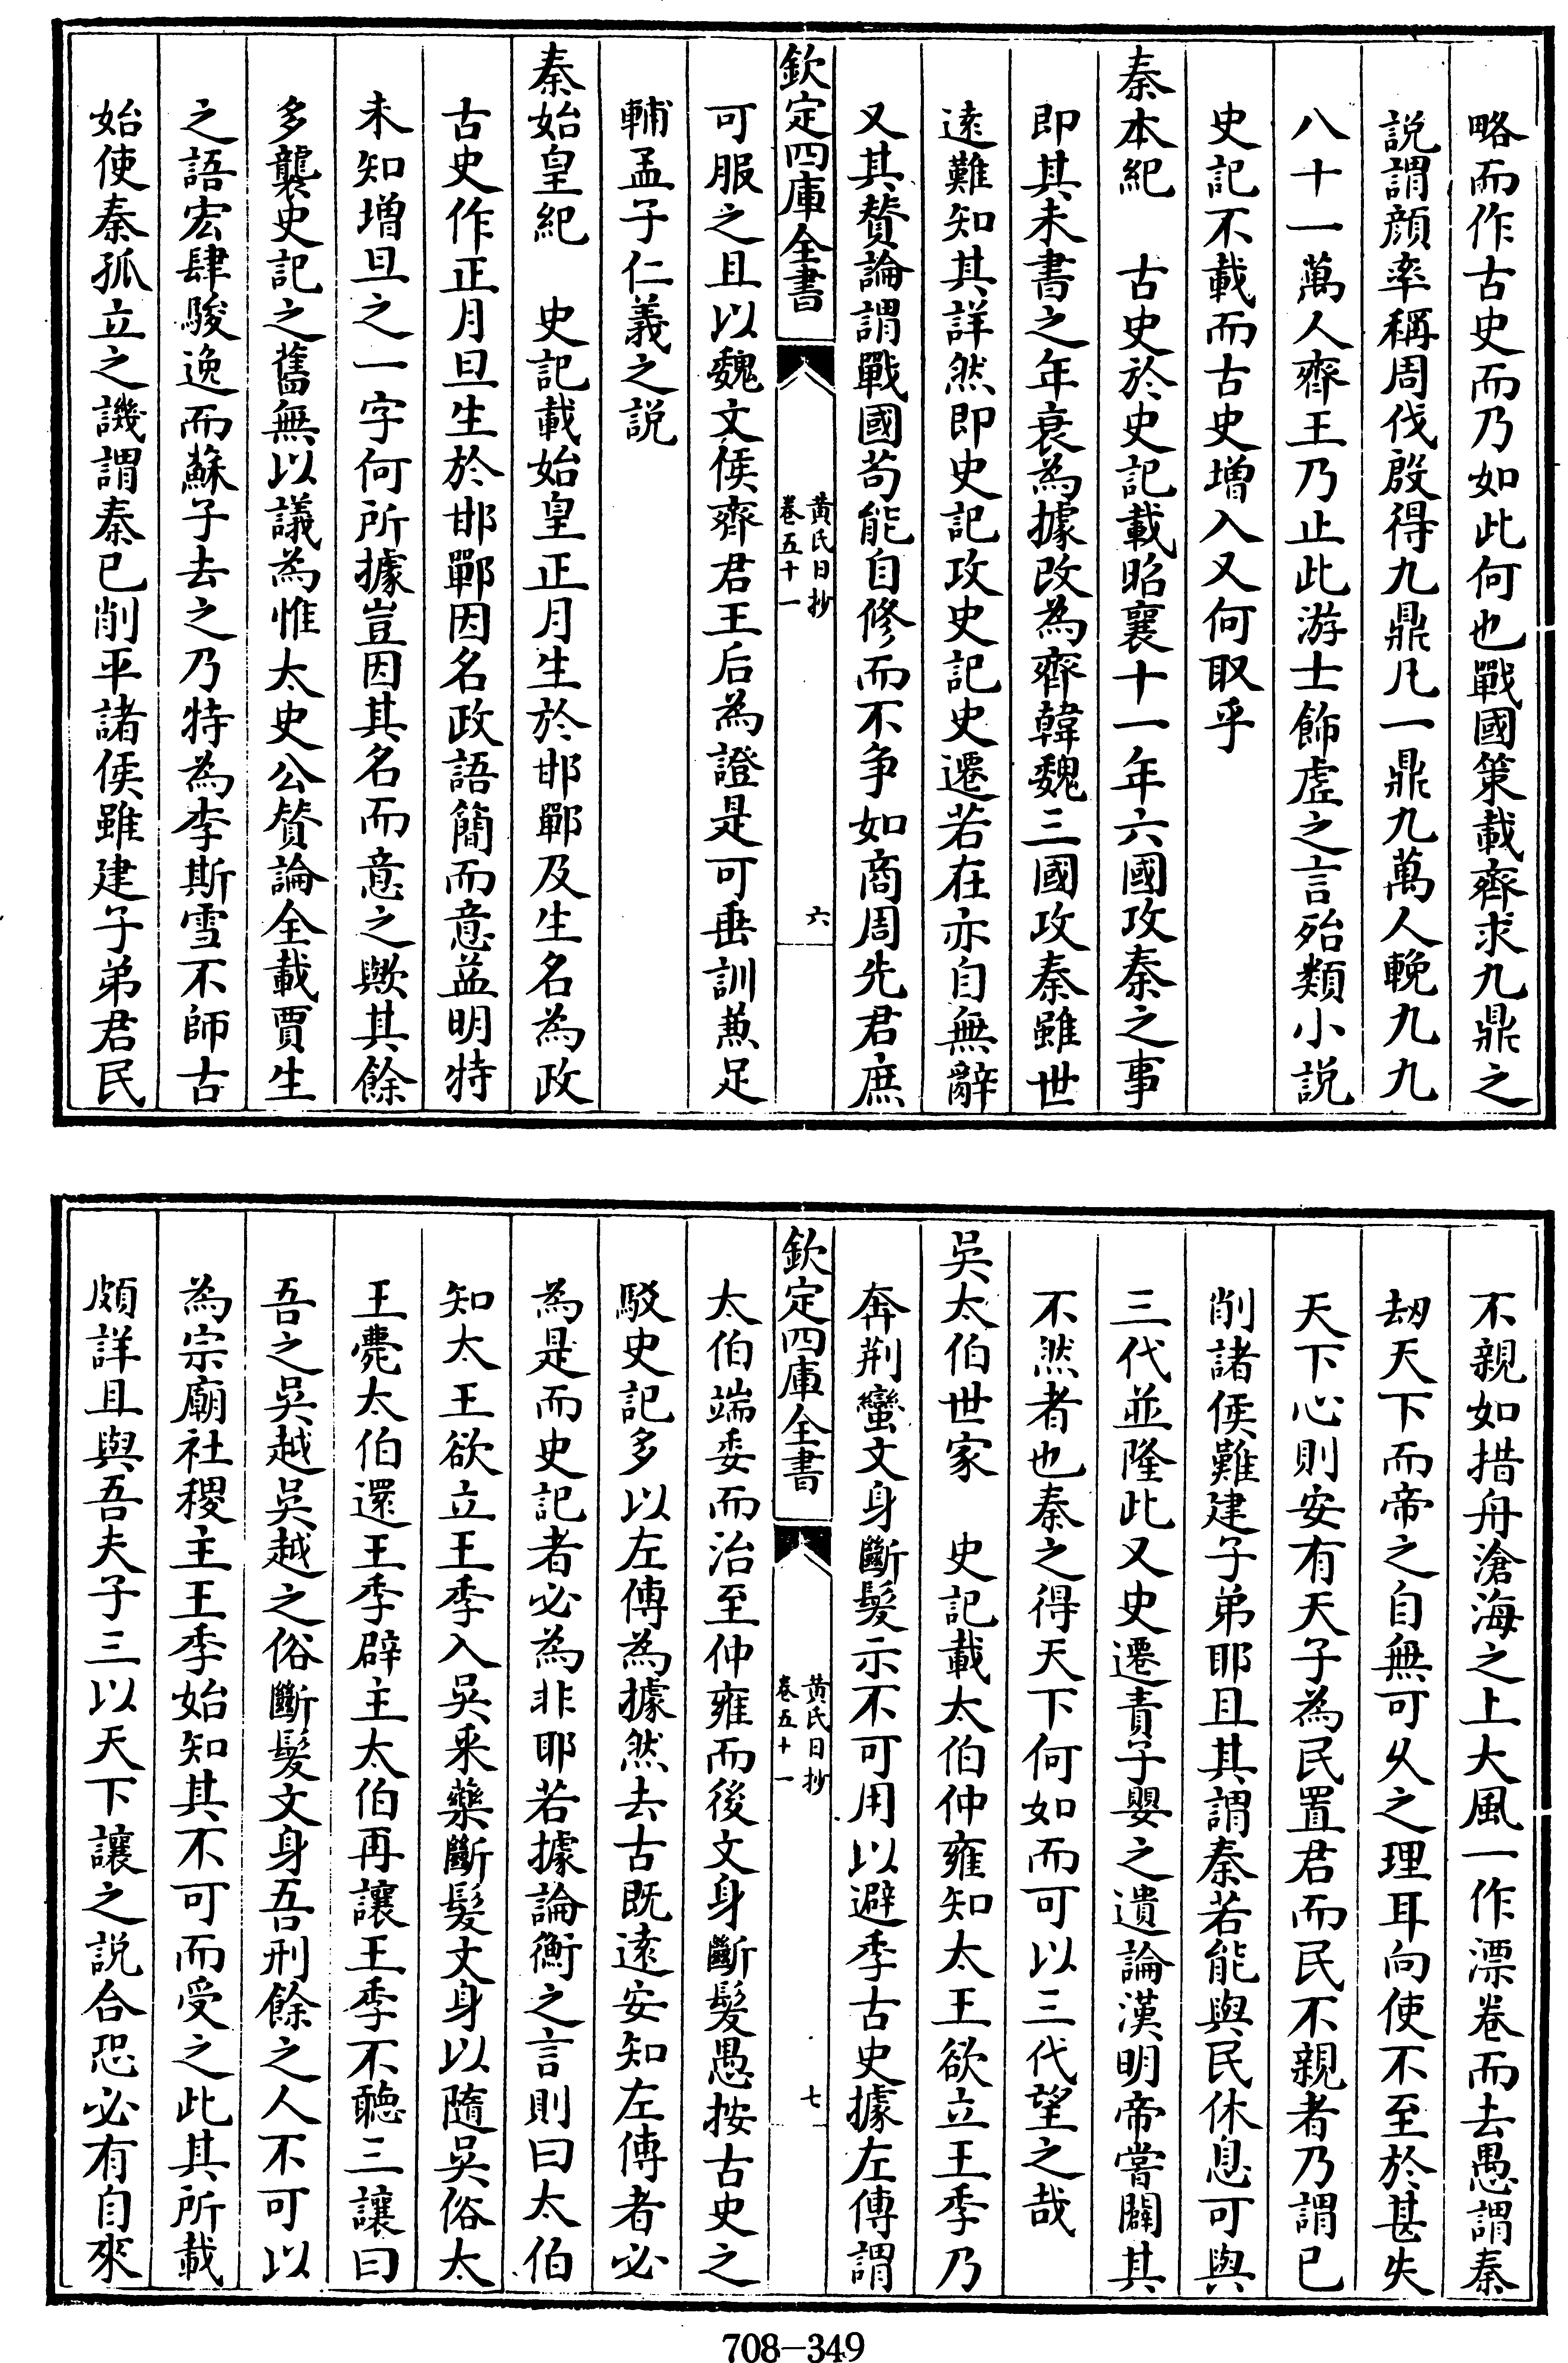 略而作古史而乃如此何也戰國策載齊求九鼎之
說謂顔率稱周伐殷得九鼎凡一鼎九萬人輓九九
八十一萬人齊王乃止此游士飾虛之言殆類小説
史記不載而古史增入又何取乎
秦本紀 古史於史記載昭襄十一年六國攻秦之事
即其未書之年衰為據改為齊韓魏三國攻秦雖世
逺難知其詳然即史記攻史記史遷若在亦自無辭
又其贊論謂戰國苟能自修而不争如商周先君庶
欽定四庫全書
黄氏日抄
卷五十一
六
可服之且以魏文侯齊君王后為證是可垂訓蒸足
輔孟子仁義之説
秦始皇紀 史記載始皇正月生於邯鄲及生名為政
古史作正月旦生於邯鄲因名政語簡而意益明特
未知增旦之一字何所據豈因其名而意之歟其餘
多襲史記之舊無以議為惟太史公贊論全載賈生
之語宏肆駿逸而蘇子去之乃特為李斯雪不師古
始使秦孤立之譏謂秦已削平諸侯雖建子弟君民
不親如措舟滄海之上大風一作漂卷而去愚謂秦
劫天下而帝之自無可久之理耳向使不至於甚失
天下心則安有天子為民置君而民不親者乃謂已
削諸侯難建子弟耶且其謂秦若能與民休息可與
三代並隆此又史遷責子嬰之遺論漢明帝嘗闢其
不然者也秦之得天下何如而可以三代望之哉
吳太伯世家 史記載太伯仲雍知太王欲立王季乃
奔荆蠻文身斷髮示不可用以避季古史據左傳謂
欽定四庫全書
黄氏日抄
卷五十一
七
太伯端委而治至仲雍而後文身斷髮愚按古史之
駁史記多以左傳為據然去古既逺安知左傳者必
為是而史記者必為非耶若據論衡之言則曰太伯
知太王欲立王季入吳采藥斷髮文身以隨吳俗太
王薨太伯還王季辟主太伯再讓王季不聽三讓曰
吾之吳越吳越之俗斷髮文身吾刑餘之人不可以
為宗廟社稷主王季始知其不可而受之此其所載
頗詳且與吾夫子三以天下讓之説合恐必有自來
708-349